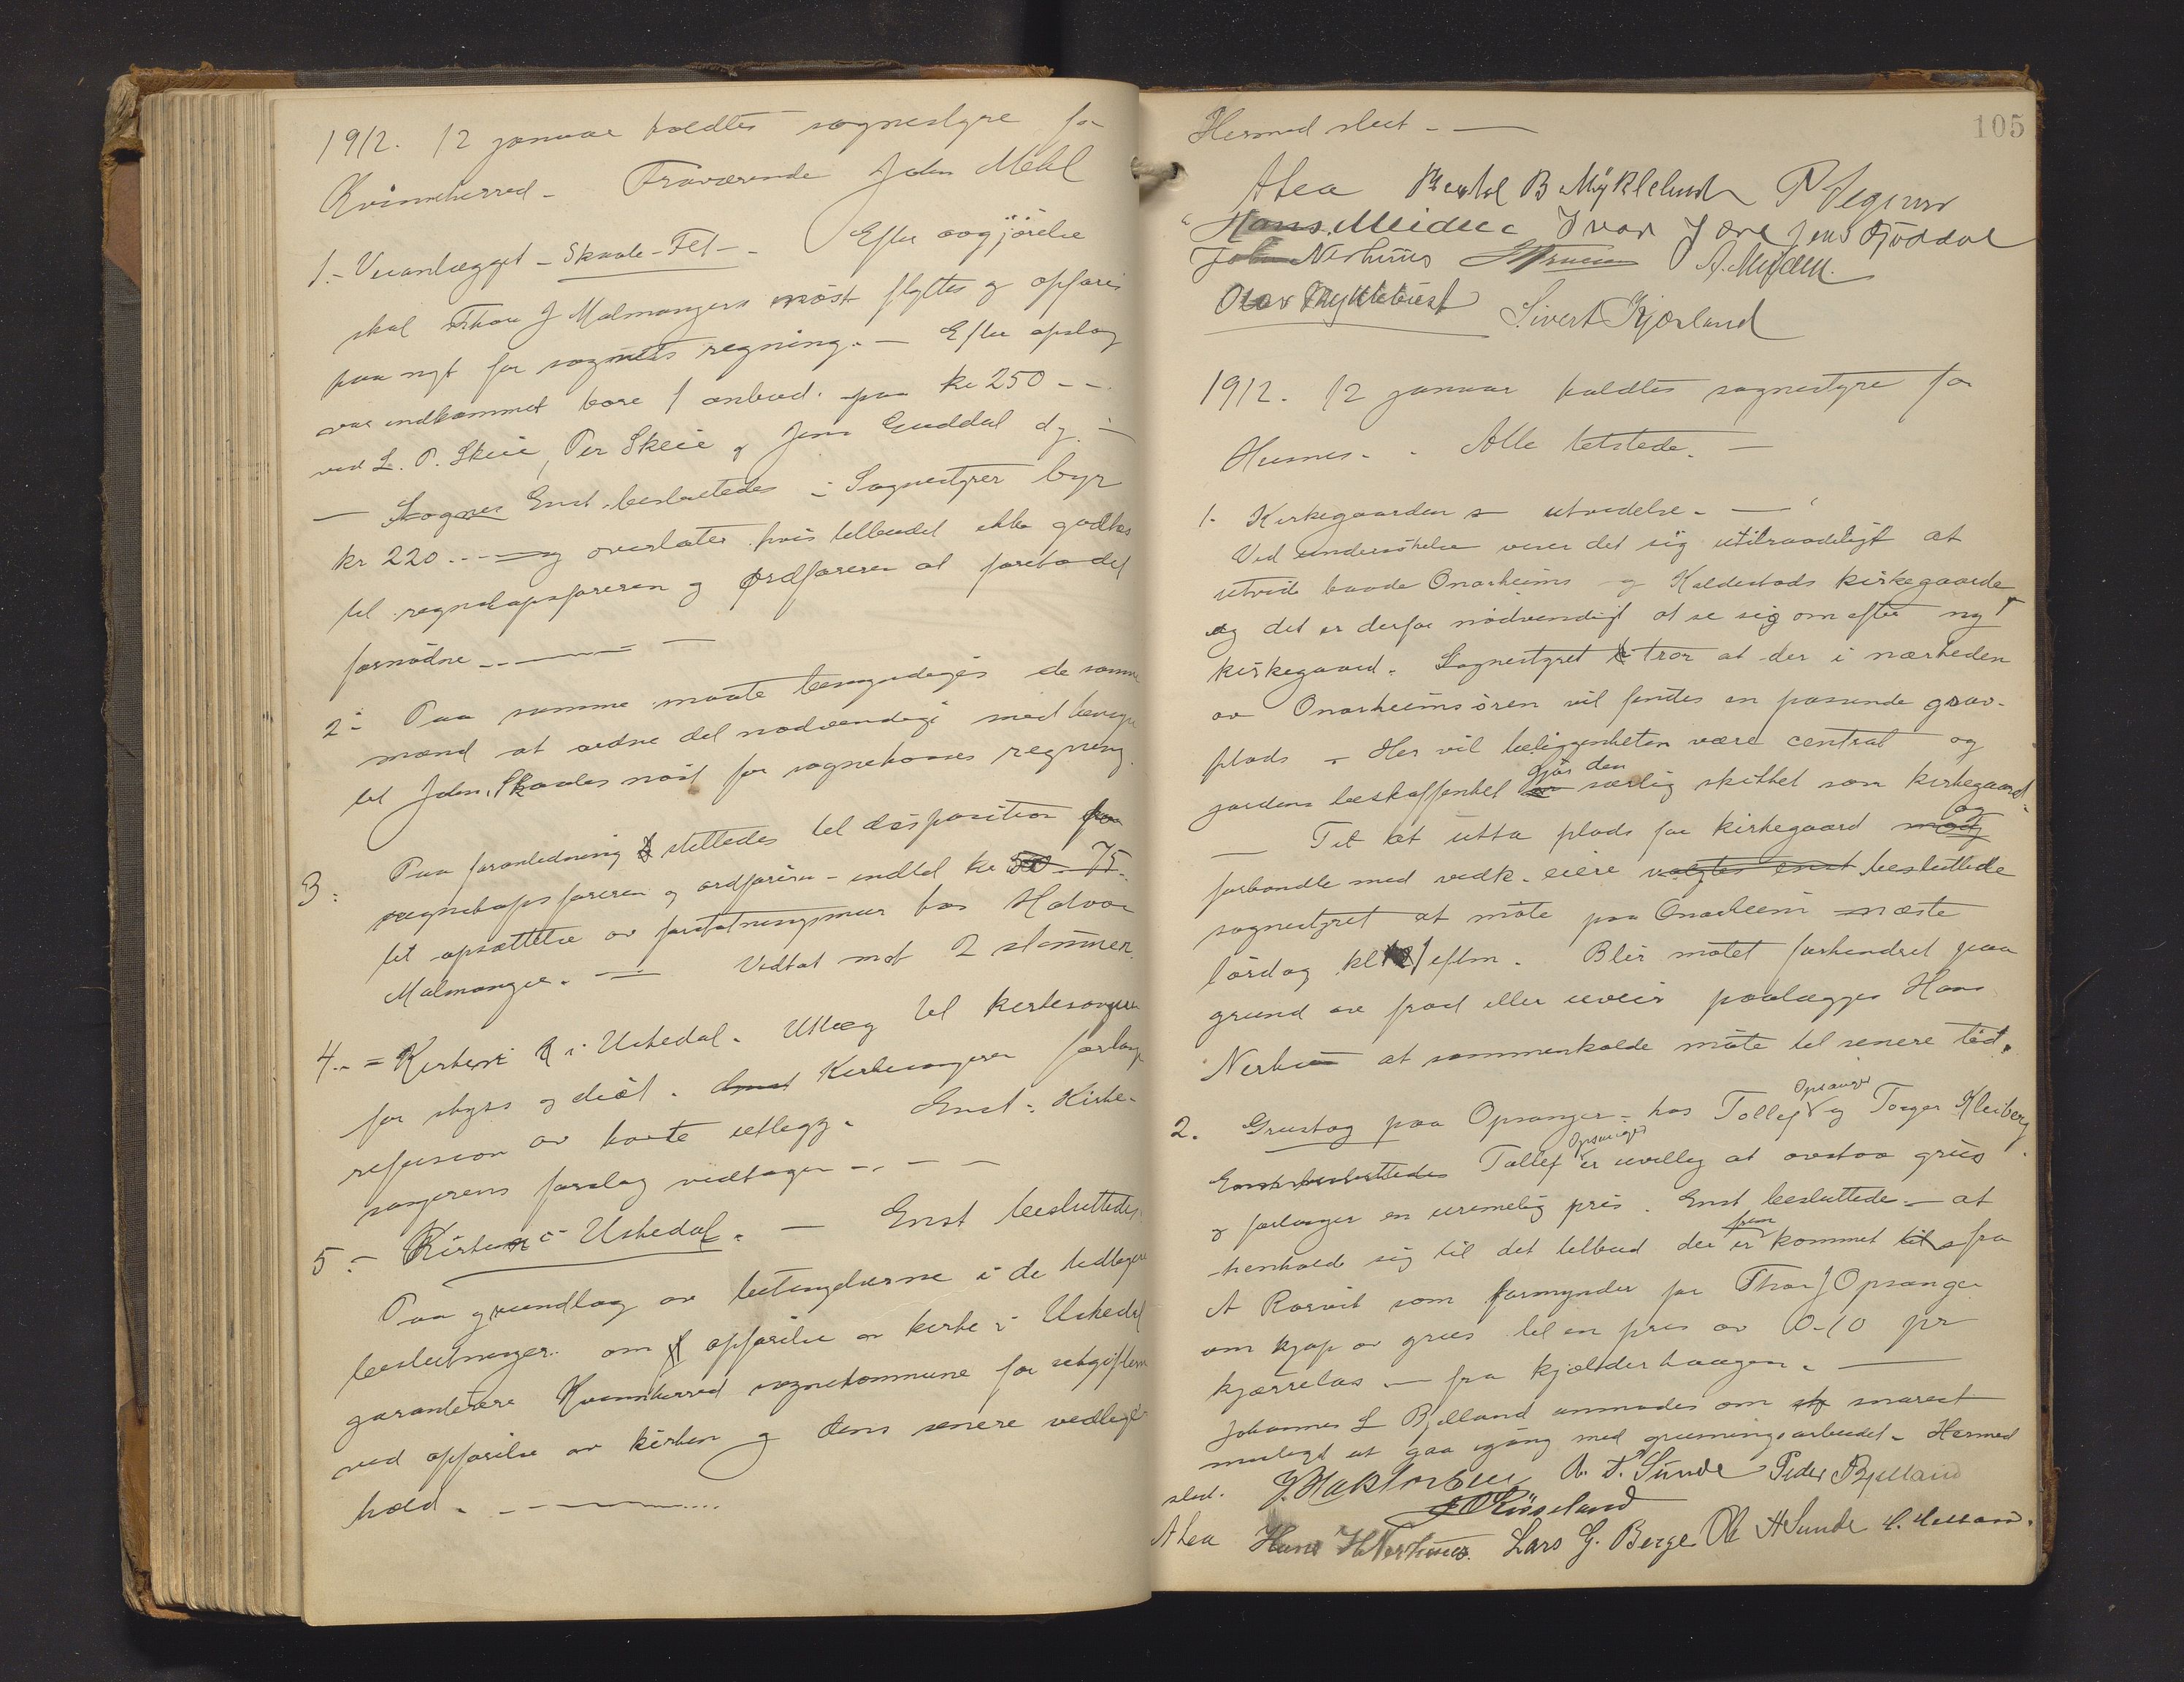 1912. 12 januar holdtes sognestyre for
Kvinnherred - Fraværende John Mehl
1. - Veianlægget - Skaale - Fet - - Efter avgjørelse
skal Thore J Malmangers nøst flyttes og opføres
paa nyt for sognets regning. - Efter opslag
var indkommet bare 1 anbud. paa kr 250 - -
ved L. P. Skeie, Per Skeie og Jens Guddal d.y. -
- Sognes Enst. besluttedes - Sognestyret byr
kr 220. - - og overlater hvis tilbudet ikke godtas
til regnskapsføreren og ordføreren at foreta det
fornødne - - -
2 - Paa samme maate bemyndiges de samme
mænd at ordne det nødvendige med
til John Skaales nøst for sognekassens regning.
3 - Paa foranledning stilledes til disposition for
regnskapsføreren og ordføreren - indtil kr 50 75.
til opsættelse av forstøtningsmur hos Halvor
Malmanger. - Vedtat mot 2 stemmer
4. - = Kirken i Uskedal. Utlæg til kirkesangeren
for skyss og diæt. Enst Kirkesangeren forlanger
refusion av havte utlegg. Enst. Kirke-
sangerens forslag vedtages - - - -
5. - Kirken i Uskedal. - Enst besluttedes
Paa grundlag av betingelserne i de tidligere
beslutninger om opførelse av kirke i Uskedal
garanterer Kvinnherred sognekommune for utgifterne
ved opførelse av kirken og dens senere vedlike-
hold - - - -
105
Hermed slut. -
ALea Bertel B Myklebust P Vegsund
Hans Meidell Ivar Jære Jens Guddal
John Nerhus A. Meidell.
Olav Myklebust Sivert Kjærland
1912. 12 januar holdtes sognestyre for
Husnes. - Alle tilstede. -
1. Kirkegaardens utvidelse. -
Ved undersøkelse viser det sig utilraadeligt at
utvide baade Onarheims og Holdestads kirkegaarde
og det er derfor nødvendigt at se sig om efter ny
kirkegaard. Sognestyret tror at der i nærheden
av Onarheimsøren vil findes en passende grav-
plads - Her vil beliggenheten være central og
jordens beskaffenhet er gjør den særlig skikket som kirkegaard.
- Til at utta plads for kirkegaard og
forhandle med vedk. eiere valgtes enst besluttede
sognestyret at møte paa Onarheim næste
lørdag kl 1 eftm. Blir møtet forhindret paa
grund av frost eller uveir paalægges Hans
Nerhus at sammenkalde møte til senere tid.
2. Grustag paa Opsanger - hos Tollef Opsanger og Torger Kleiberg
Enst besluttedes Tollef Opsanger er uvillig at avstaa grus
og forlanger en urimelig pris. Enst besluttede - at
henholde sig til det tilbud der er frem kommet til fra
A Røsvik som formynder for Thor J Opsanger
om kjøp av grus til en pris av 0-10 pr
kjærrelas - fra kjælderhaugen. -
Johannes L Bjelland anmodes om snarest
mulegt at gaa igang med grusningsarbeidet - Hermed
slut. J. Haktorson A. T. Sunde Peder Bjelland
J O Røsseland
ALea Hans H Nerhus. Lars G. Berge Ole H Sunde